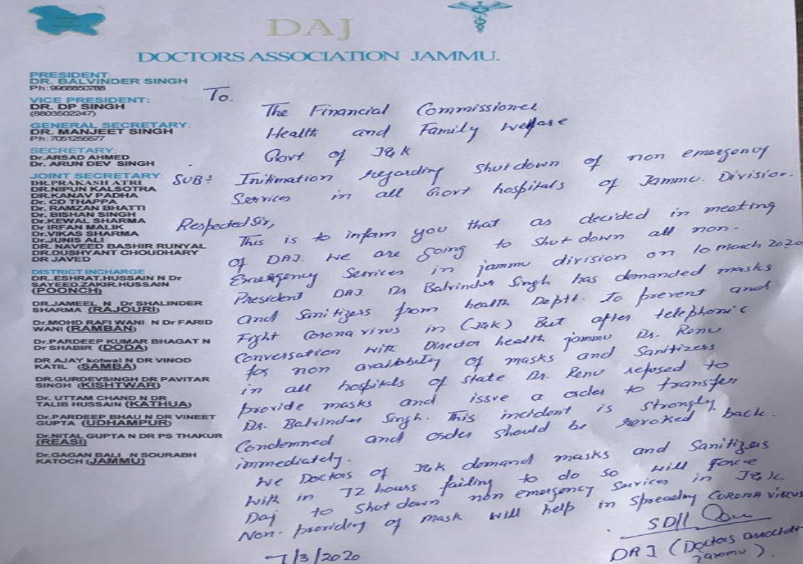 DAJ
DOCTORS ASSOCIATION JAMMU.
PRESIDENT
DR. BALVINDER SINGH
Ph: 9968650788
VICE PRESIDENT:
DR. DP SINGH
(8803502247)
GENERAL SECRETARY:
DR. MANJEET SINGH
Ph: 7051255577
SECRETARY:
Dr.ARSAD AHMED
Dr. ARUN DEV SINGH
JOINT SECRETARY:
DR.PRAKASH ATRI
DR.NIPUN KALSOTRA
DR.KANAV PADHA
Dr. CD THAPPA
Dr. RAMZAN BHATTI
Dr. BISHAN SINGH
Dr.KEWAL SHARMA
Dr IRFAN MALIK
Dr.VIKAS SHARMA
Dr.JUNIS ALI
DR. NAVEED BASHIR RUNYAL
DR.DUSHYANT CHOUDHARY
DR JAVED
DISTRICT INCHARGE
DR..ESHRAT.HUSSAIN N Dr
SAYEED.ZAKIR.HUSSAIN
(POONCH)
DR.JAMEEL N Dr SHALINDER
SHARMA (RAJOURI)
Dr.MOHD RAFI WANI N Dr FARID
WANI (RAMBAN)
Dr.PARDEEP KUMAR BHAGAT N
Dr SHABIR (DODA)
DR AJAY kotwal N DR VINOD
KATIL (SAMBA)
DR.GURDEVSINGH DR PAVITAR
SINGH (KISHTWAR)
Dr. UTTAM CHAND N DR
TALIB HUSSAIN (KATHUA)
Dr.PARDEEP BHAU N DR VINEET
GUPTA (UDHAMPUR)
Dr.NITAL GUPTA N DR PS THAKUR
(REASI)
Dr.GAGAN BALI N SOURABH
KATOCH (JAMMU)
To.
The Financial Commissioner
Health and Family Welfare
Govt of J&K
SUB: Initimation regarding Shutdown of non emergency
Services in all Govt hospitals of Jammu Division.
Respected Sir,
This is to inform you that as decided in meeting
of DAJ. We are going to Shut down all non-
Emergency Services in jammu division on 10 March 2020
President DAJ Dr Balvinder Singh has demanded masks
and Sanitizers from health Deptt. To prevent and
Fight Corona virus in (J&K) But after telephonic
Conversation with Director health jammu Dr. Renu
for non availbility of masks and Sanitizers
in all hospitals of state Dr. Renu refused to
provide masks and issue a order to transfer
Dr. Balvinder Singh. This incident is strongly
Condemned and order should be revoked back.
immediately.
We Doctors of J&K demand masks and Sanitizers
with in 72 hours failing to do so will force
Daj to Shut down non emergency Services in J&K.
Non. providing of mask will help in Spreading CORONA VIRUS
7/3/2020
SD//
DAJ (Doctors association
jammu).